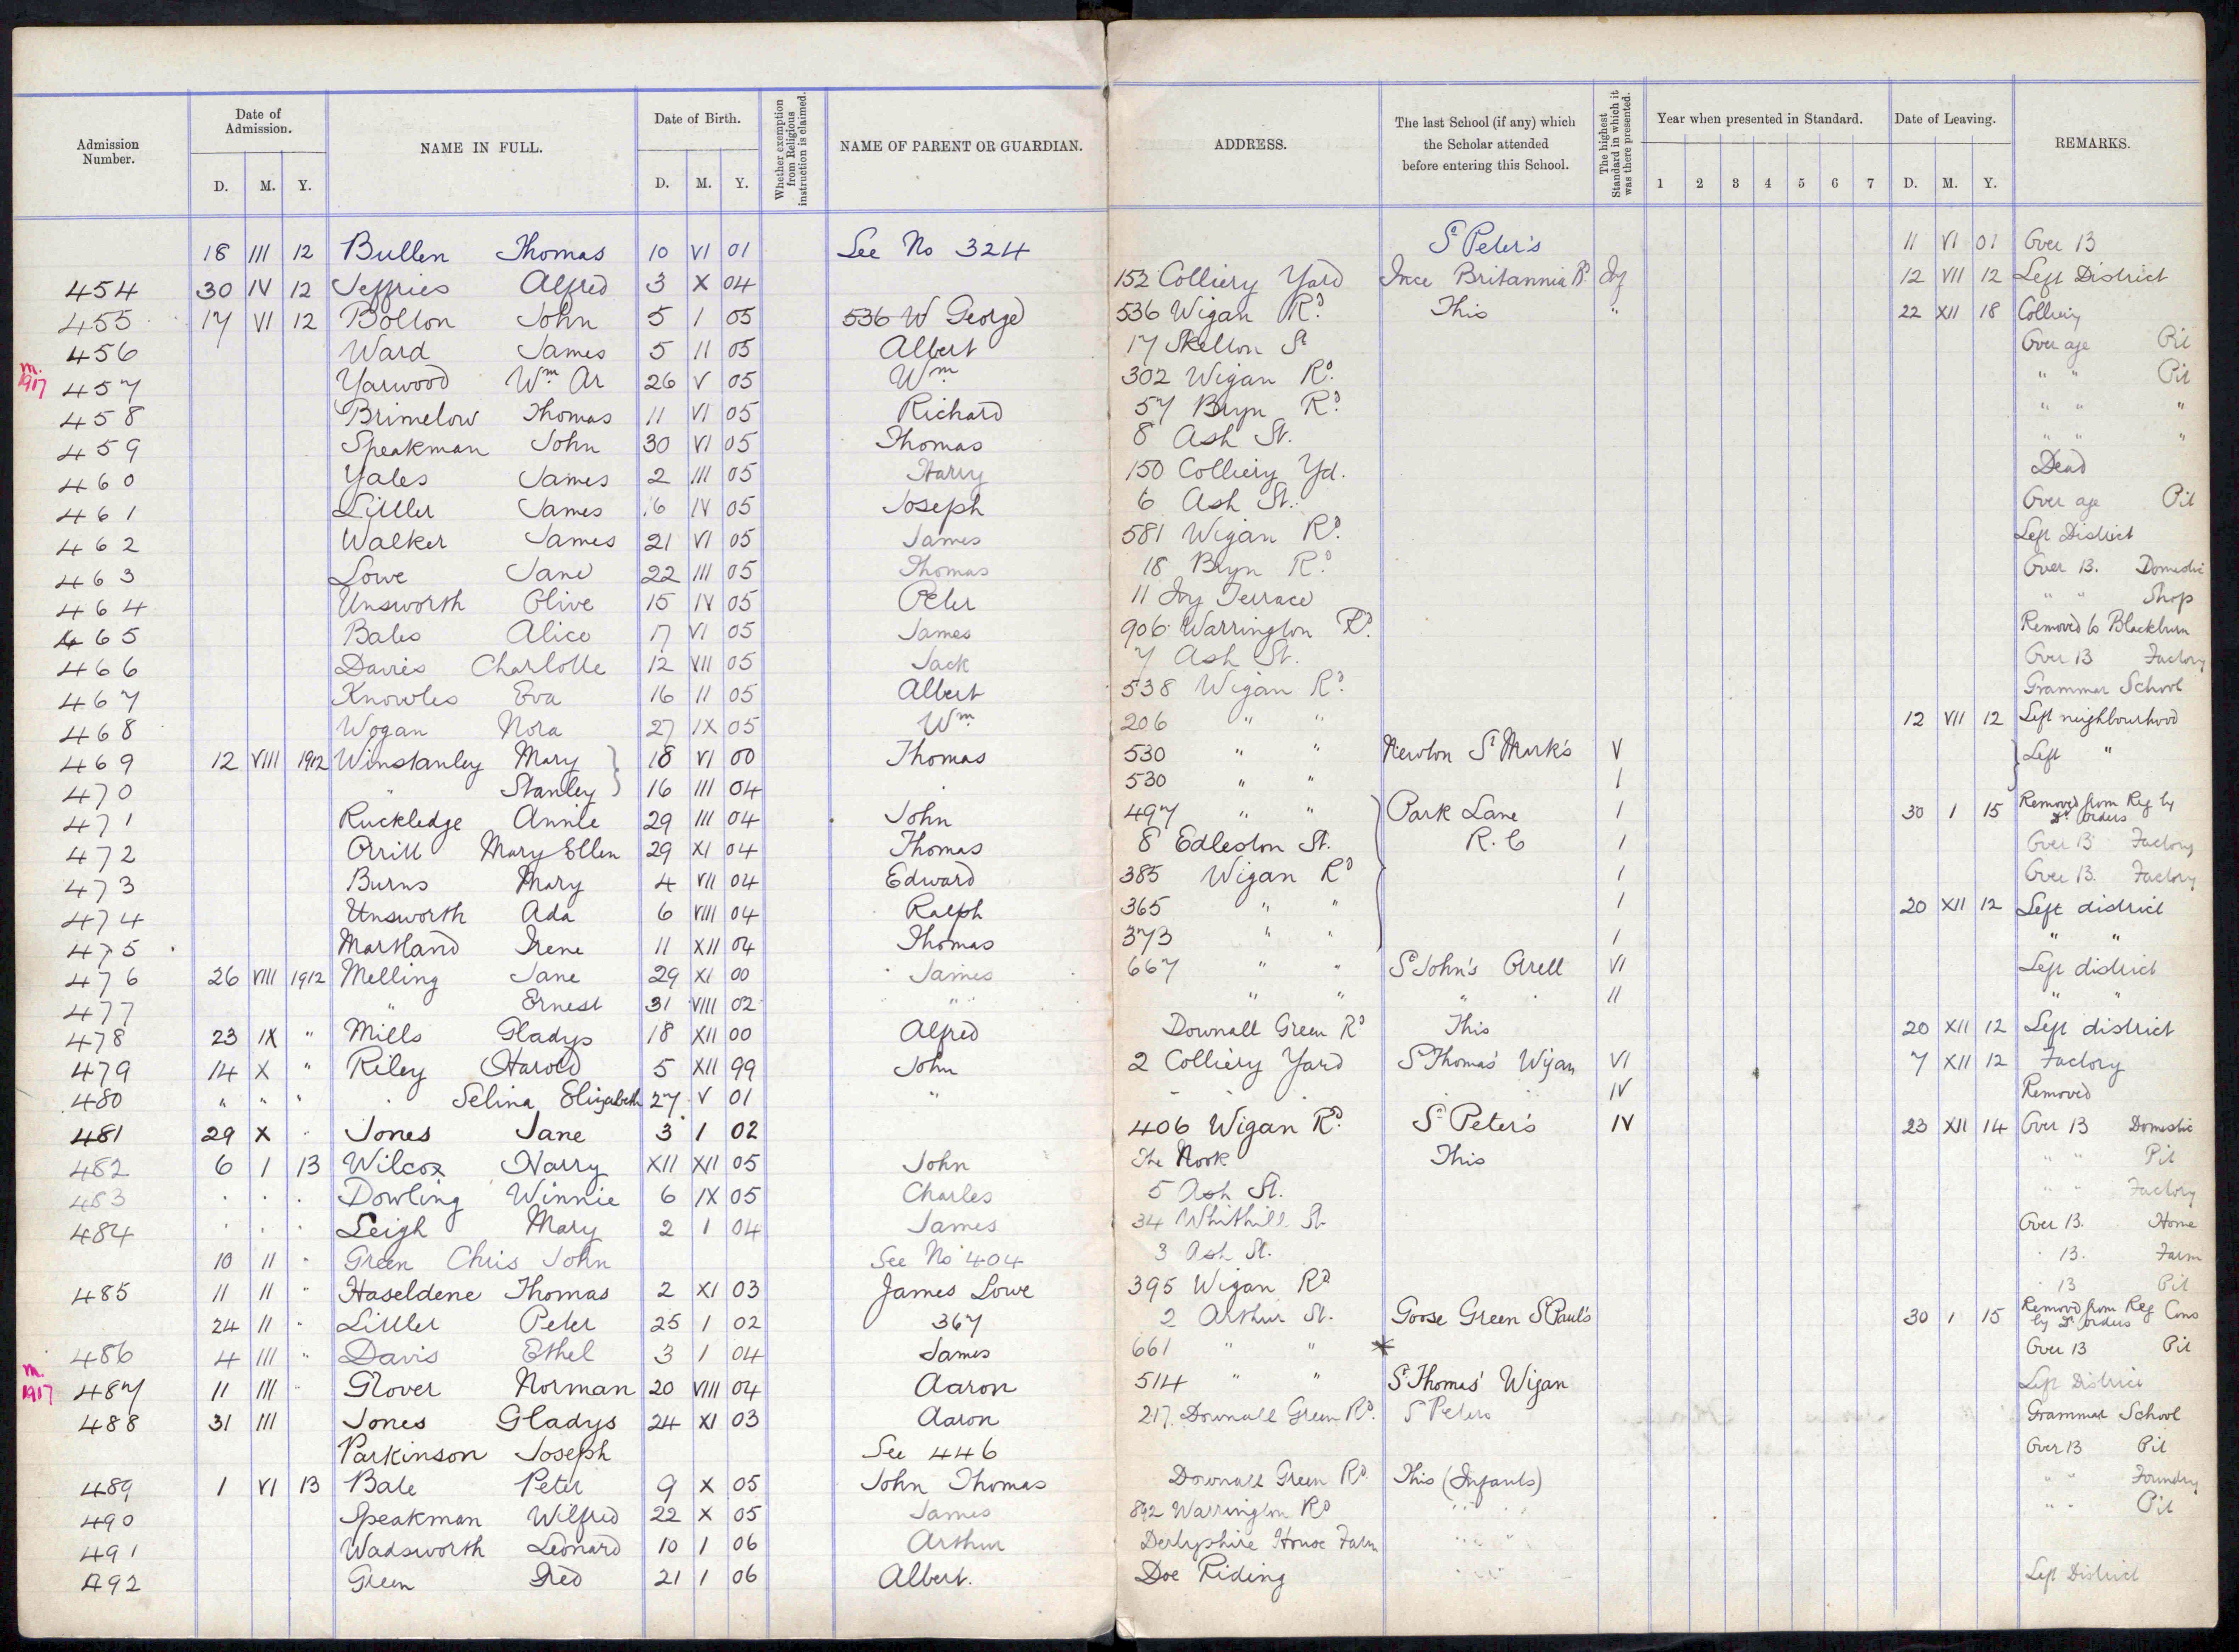 Admission Number. Date of Admission. D. M. Y. NAME IN FULL. Date of Birth. D. M. Y. Whether exemption from Religious instruction is claimed. NAME OF PARENT OR GUARDIAN. ADDRESS. The last School (if any) which the Scholar attended before entering this School. The highest Standard in which it was there presented. Year when presented in Standard. 1 2 3 4 5 6 7 Date of Leaving. D. M. Y. REMARKS.
18 III 12 Bullen Thomas 10 VI 01 See No 324 St Peter's 11 VI 01 Over 13
454 30 IV 12 Jeffries Alfred 3 X 04 152 Colliery Yard Ince Britannia B. Inf 12 VII 12 Left District
455 17 VI 12 Bolton John 5 1 05 536 W George 536 Wigan Rd. This " 22 XII 18 Colliery
456 Ward James 5 11 05 Albert 17 Skelton St Over age Pit
m. 1917 457 Yarwood Wm Ar 26 V 05 Wm 302 Wigan Rd. " " Pit
458 Brimelow Thomas 11 VI 05 Richard 57 Bryn Rd. " " "
459 Speakman John 30 VI 05 Thomas 8 Ash St. " " "
460 Yates James 2 III 05 Harry 150 Colliery Yd. Dead
461 Littler James 6 IV 05 Joseph 6 Ash St. Over age Pit
462 Walker James 21 VI 05 James 581 Wigan Rd. Left District
463 Lowe Jane 22 III 05 Thomas 18 Bryn Rd. Over 13. Domestic
464 Unsworth Olive 15 IV 05 Peter 11 Ivy Terrace " " Shop
465 Bates Alice 17 VI 05 James 906 Warrington Rd. Removed to Blackburn
466 Davies Charlotte 12 VII 05 Jack 7 Ash St. Over 13 Factory
467 Knowles Eva 16 11 05 Albert 538 Wigan Rd. Grammar School
468 Wogan Nora 27 IX 05 Wm 206 " " 12 VII 12 Left neighbourhood
469 12 VIII 1912 Winstanley Mary 18 VI 00 Thomas 530 " " Newton St Mark's V Left "
470 " Stanley 16 III 04 530 " " 1
471 Ruckledge Annie 29 III 04 John 497 " " Park Lane 1 30 1 15 Removed from Reg by Dr. orders
472 Orrill Mary Ellen 29 XI 04 Thomas 8 Edleston St. R.C 1 Over 13 Factory
473 Burns Mary 4 VII 04 Edward 385 Wigan Rd 1 Over 13. Factory
474 Unsworth Ada 6 VIII 04 Ralph 365 " " 1 20 XII 12 Left district
475 Markland Irene 11 XII 04 Thomas 373 " " 1 " "
476 26 VIII 1912 Melling Jane 29 XI 00 James 667 " " St John's Orrell VI Left district
477 " Ernest 31 VIII 02 " " " " " II " "
478 23 IX " Mills Gladys 18 XII 00 Alfred Downall Green Rd This 20 XII 12 Left district
479 14 X " Riley Harold 5 XII 99 John 2 Colliery Yard St Thomas' Wigan VI 7 XII 12 Factory
480 " " " Selina Elizabeth 27 V 01 " IV Removed
481 29 X " Jones Jane 3 1 02 406 Wigan Rd. St Peter's IV 23 XII 14 Over 13 Domestic
482 6 1 13 Wilcox Harry XII XII 05 John The Nook This " " Pit
483 . . . Dowling Winnie 6 IX 05 Charles 5 Ash St. " " Factory
484 . . . Leigh Mary 2 1 04 James 34 Whithill St Over 13. Home
10 11 " Green Chris John See No 404 3 Ash St. " 13. Farm
485 11 11 " Haseldene Thomas 2 XI 03 James Lowe 395 Wigan Rd " 13 Pit
24 11 " Littler Peter 25 1 02 367 2 Arthur St. Goose Green St Paul's 30 1 15 Removed from Reg by Dr orders Cons
486 4 III " Davis Ethel 3 1 04 James 661 " " * Over 13 Pit
m. 1917 487 11 III " Glover Norman 20 VIII 04 Aaron 514 " " St Thomas' Wigan Left District
488 31 III Jones Gladys 24 XI 03 Aaron 217 Downall Green Rd. St Peters Grammar School
Parkinson Joseph See 446 Over 13 Pit
489 1 VI 13 Bate Peter 9 X 05 John Thomas Downall Green Rd. This (Infants) " " Foundry
490 Speakman Wilfred 22 X 05 James 892 Warrington Rd " " " " Pit
491 Wadsworth Leonard 10 1 06 Arthur Derbyshire House Farm " "
492 Green Fred 21 1 06 Albert. Doe Riding " " Left District